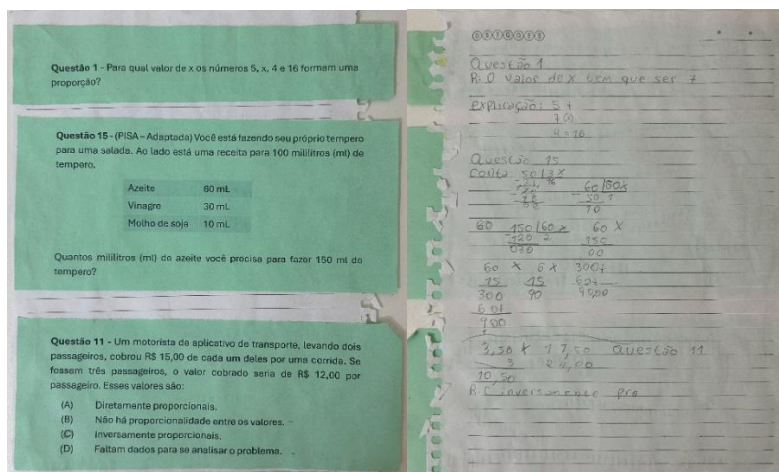 Questão 1 - Para qual valor de x os números 5, x, 4 e 16 formam uma
proporção?
Questão 15 - (PISA – Adaptada) Você está fazendo seu próprio tempero
para uma salada. Ao lado está uma receita para 100 mililitros (ml) de
tempero.
Azeite 60 mL
Vinagre 30 mL
Molho de soja 10 mL
Quantos mililitros (ml) do azeite você precisa para fazer 150 ml do
tempero?
Questão 11 - Um motorista de aplicativo de transporte, levando dois
passageiros, cobrou R$ 15,00 de cada um deles por uma corrida. Se
fossem três passageiros, o valor cobrado seria de R$ 12,00 por
passageiro. Esses valores são:
(A) Diretamente proporcionais.
(B) Não há proporcionalidade entre os valores.
(C) Inversamente proporcionais.
(D) Faltam dados para se analisar o problema.
Questão 1
R: O valor de x tem que ser 7
explicação: 5 +
4 = 16
Questão 15
Conta
60 150 60 x
120 2 150
030 00
60 x 6 x 300+
15 15 60+
300 90
60+
900
3,50 x 17,50 Questão 11
3
10,50
R: C inversamente pro